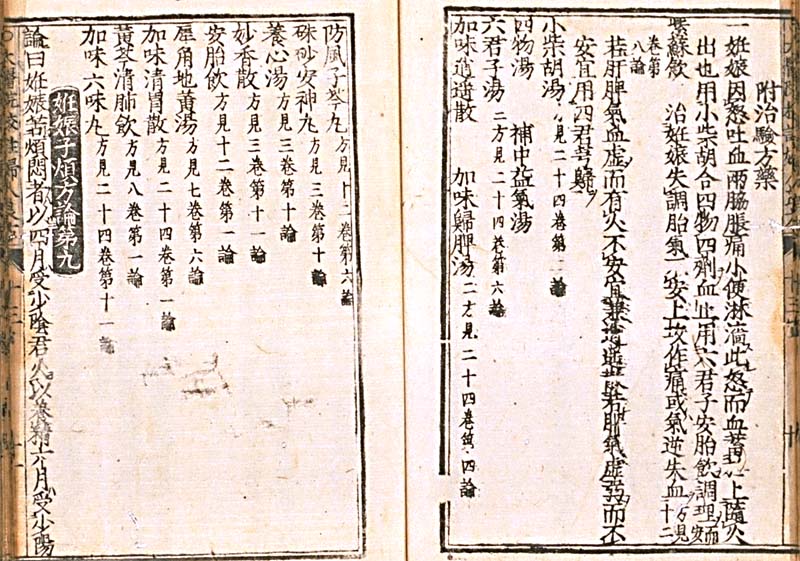 附治驗方藥
一妊娠因怒吐血兩脇脹痛小便淋澁此怒而血蓄於上隨火
出也用小柴胡合四物四劑血止用六君子安胎飲調理而安
紫蘇飲 治妊娠失調胎氣不安上攻作痛或氣逆失血方見十二
卷第八論
若肝脾氣血虛而有火不安宜兼逍遙散若脾氣虛弱而不
安宜用四君芎歸
小柴胡湯 方見二十四卷第二論
四物湯 補中益氣湯
六君子湯 二方見二十四卷第六論
加味逍遙散 加味歸脾湯 二方見二十四卷第四論
防風子芩丸 方見十二卷第六論
硃砂安神丸 方見三卷第十論
養心湯 方見三卷第十論
妙香散 方見三卷第十一論
安胎飲 方見十二卷第一論
犀角地黃湯 方見七卷第六論
加味清胃散 方見二十四卷第一論
黃芩清肺飲 方見八卷第一論
加味六味丸 方見二十四卷第十一論
妊娠子煩方論第九
論曰妊娠苦煩悶者以四月受少陰君火以養精六月受少陽